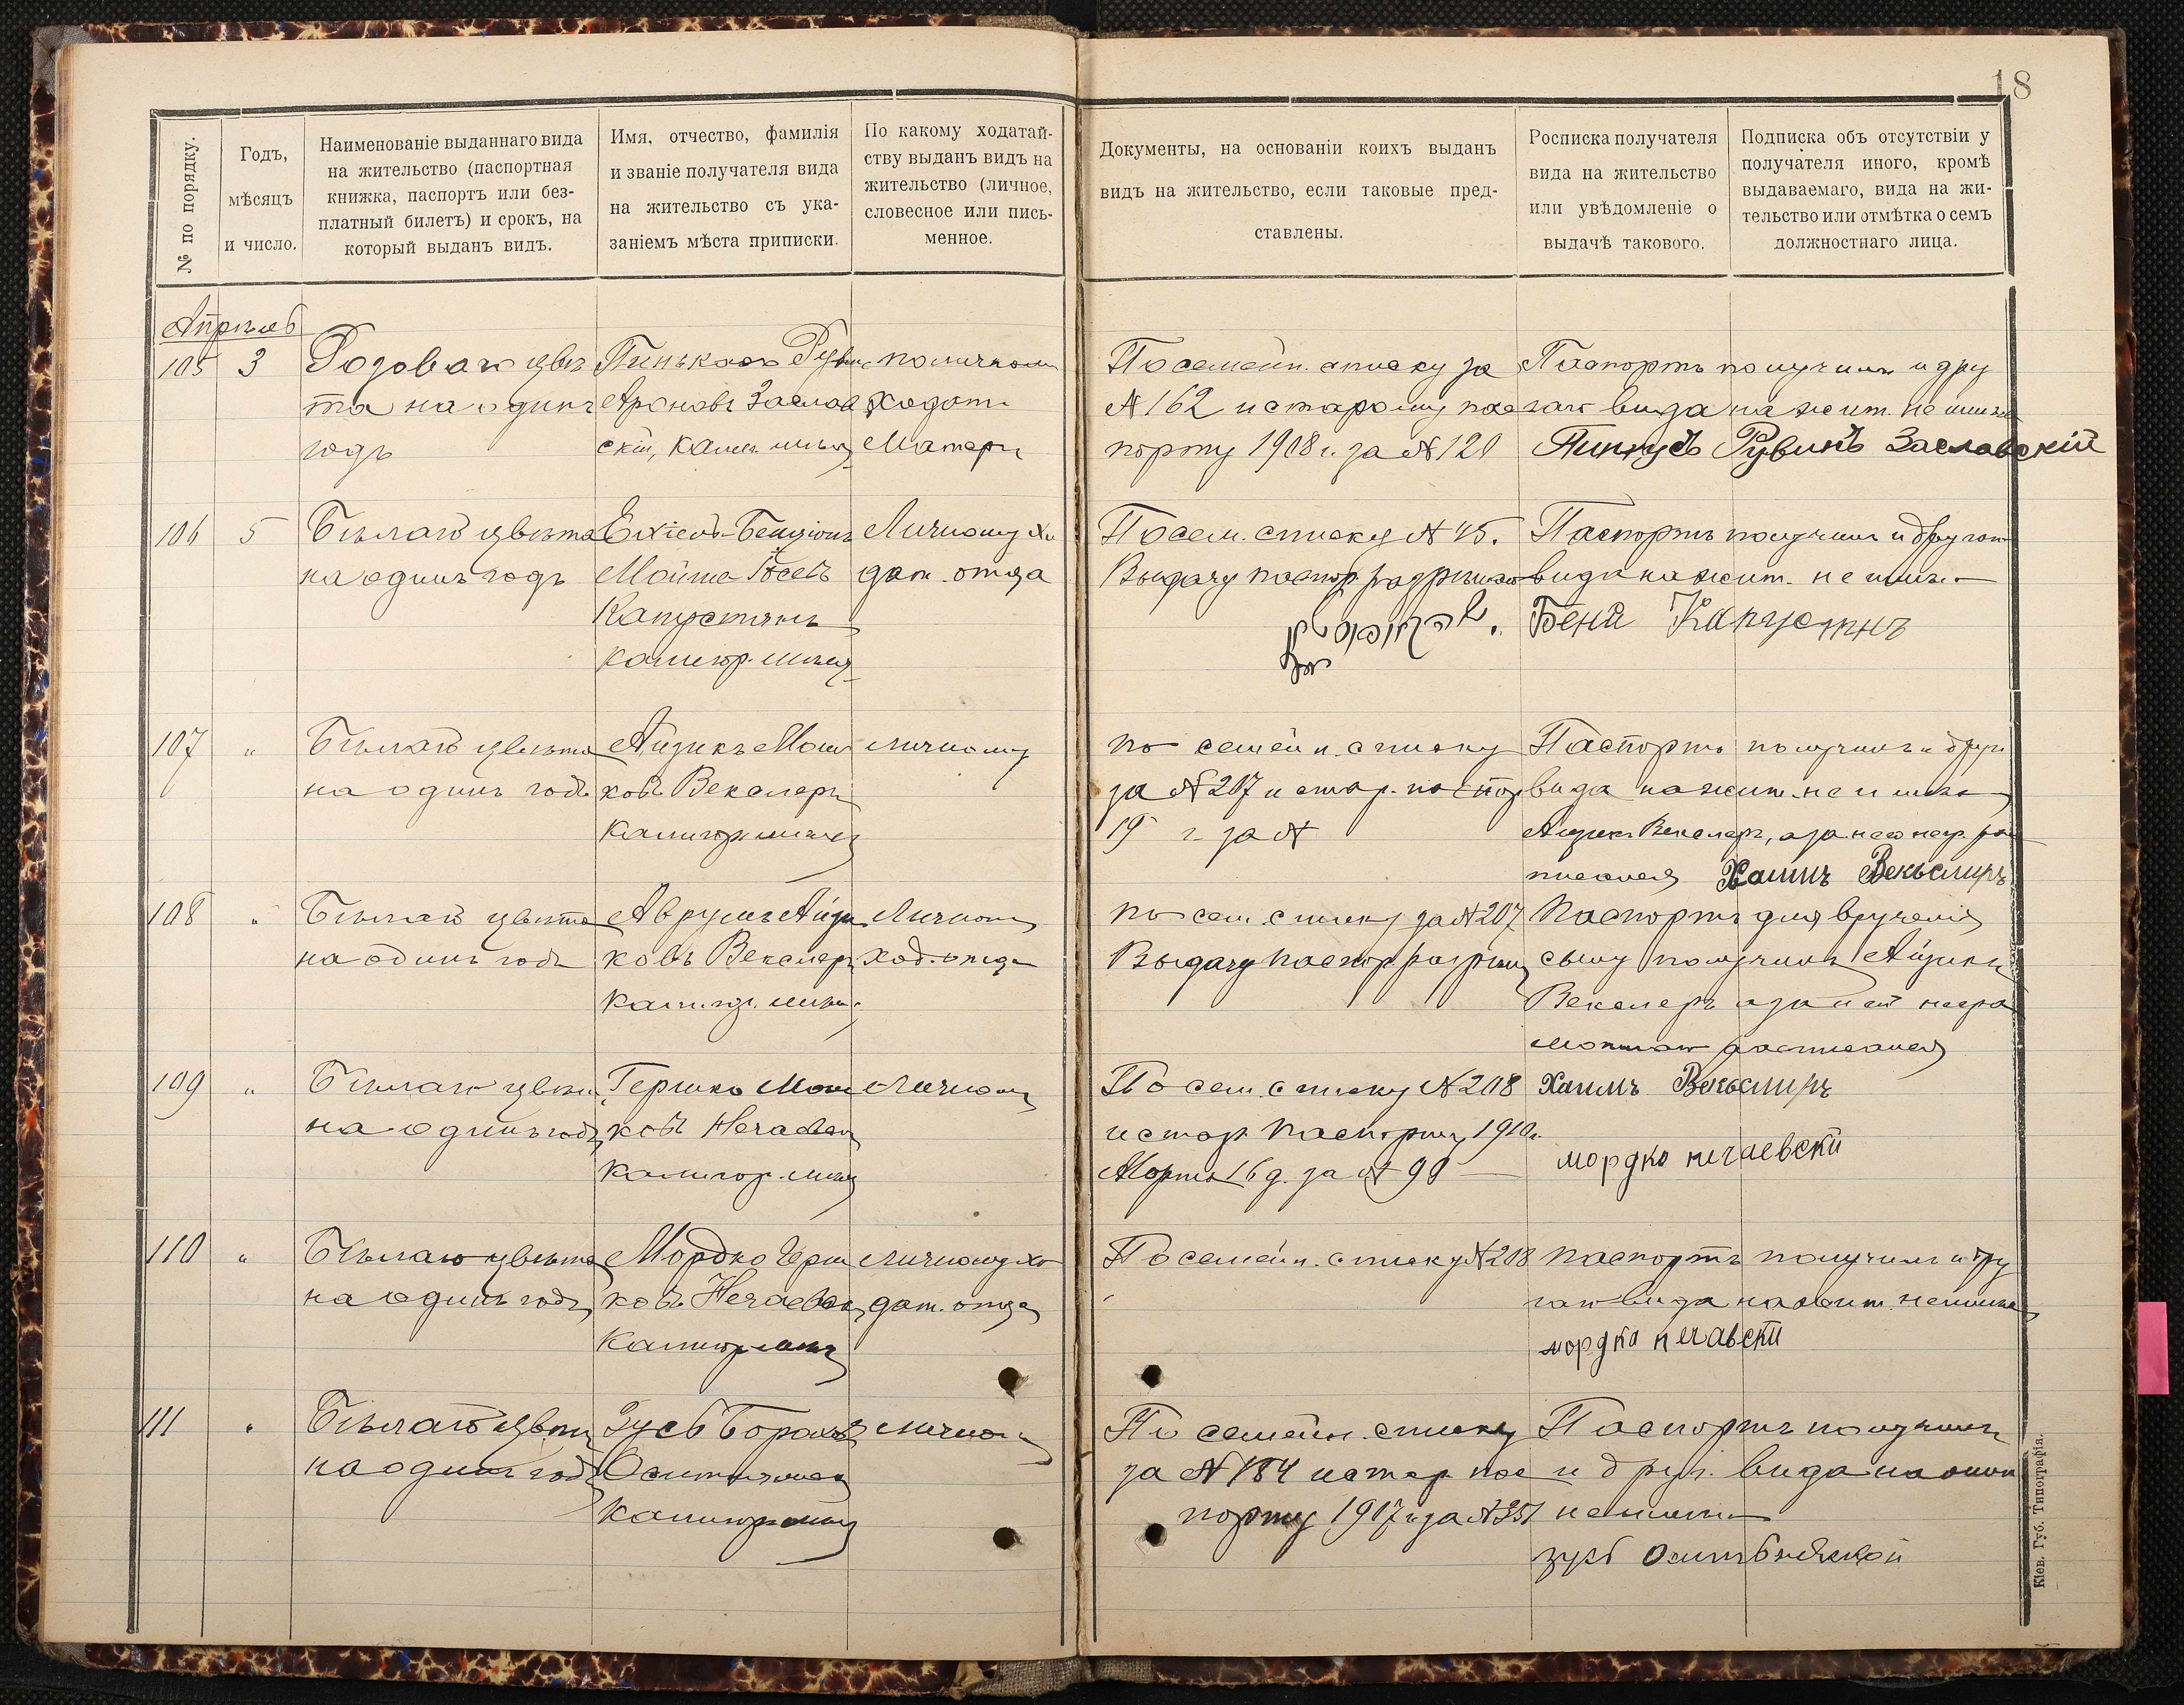 18
№ по порядку.
Годъ,
мѣсяцъ
и число.
Наименованіе выданнаго вида
на жительство (паспортная
книжка, паспортъ или без-
платный билетъ) и срокъ, на
который выданъ видъ.
Имя, отчество, фамилія
и званіе получателя вида
на жительство съ ука-
заніемъ мѣста приписки.
По какому ходатай-
ству выданъ видъ на
жительство (личное,
словесное или пись-
менное.
Документы, на основаніи коихъ выданъ
видъ на жительство, если таковые пред-
ставлены.
Росписка получателя
вида на жительство
или увѣдомленіе о
выдачѣ такового.
Подписка объ отсутствіи у
получателя иного, кромѣ
выдаваемаго, вида на жи-
тельство или отмѣтка о семъ
должностнаго лица.
Апрѣль
105
3
Розоваго цвѣ
та на одинъ
годъ
Пинькасъ Рувин
Ароновъ Заслав
скій,
по личному
Ходат.
Матери
По семейн. списку за
№ 162 и старому пас
порту 1908 г. за № 120
Паспортъ получилъ и дру
гаго вида на жит. не имѣю
Пинкусъ Рувинъ Заславскій
106
5
Бѣлаго цвѣта
на одинъ годъ
Ехіель-Бенціонъ
Мойше Іосевъ
Капустянъ
Личному хо
дат. отца
По сем. списку № 45.
Выдачу паспор. разрѣшаю
Паспортъ получилъ и другого
вида на жит. не имѣю
Беня Капустнъ
107
"
Бѣлаго цвѣта
на одинъ годъ
Айзикъ Мош
ковъ Векслеръ
личному
по семейн. списку
за № 207 и стар. паспор
19 г. за №
Паспортъ получилъ и друг
вида на жит. не имѣю
Айзикъ Векслеръ, а за него негр. рас
писался Хаимъ Векьслиръ
108
"
Бѣлаго цвѣта
на одинъ годъ
Аврумъ Айзи
ковъ Векслеръ
Личному
ход. отца
по сем. списку за № 207
Выдачу паспор. разрѣш
Паспортъ для врученія
сыну получилъ Айзикъ
Векслеръ а за него негра
мотнаго расписался
Хаимъ Векьслиръ
109
"
Бѣлаго цвѣта
на одинъ годъ
Гершко Мош
ковъ Нечаевск
Личному
По сем. списку № 208
и стар. паспорту 1910 г.
Марта 16 д. за № 90
мордко нечаевски
110
"
Бѣлаго цвѣта
на одинъ годъ
Мордко Герш
ковъ Нечаевск
личному хо
дат. отца
По семейн. списку № 208
паспортъ получилъ и дру
гаго вида на жит. не имѣю
мордко нечавски
111
"
Бѣлаго цвѣта
на одинъ годъ
Зусь Борах
личному
По семейн. списку
за № 184 и стар. пас
порту 1907 г. за № 351
Паспортъ получилъ
и друг. вида на жит
не имѣю
зусь
Кіев. Губ. Типографія.